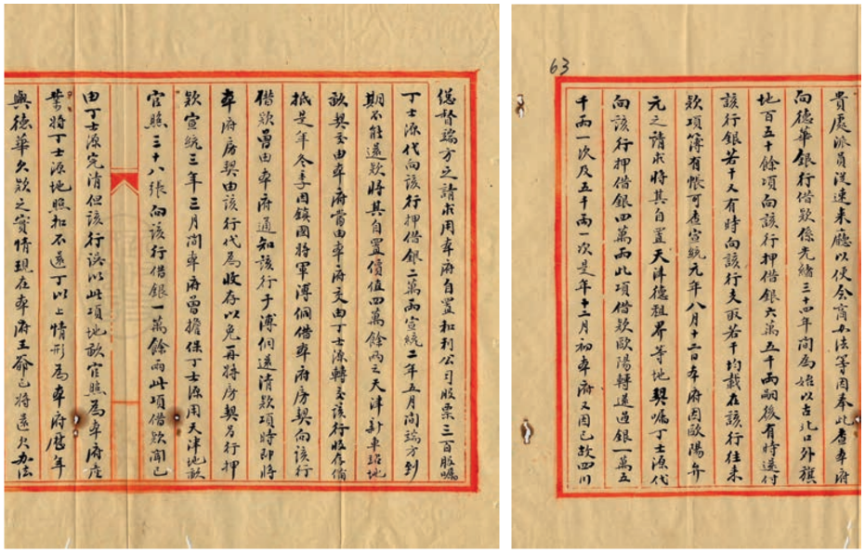 63
貴處派員從速來廳以便會商辦法等因奉此查本府
向德華銀行借款係光緒三十四年間為始以古北口外旗
地百五十餘項向該行押借銀六萬五千兩嗣後有時還付
該行銀若干又有時向該行支取若干均載在該行往來
款項簿有帳可查宣統元年八月十二日本府因歐陽弁
元之請求將其自置天津德租界等地契囑丁士源代
向該行押借銀四萬兩此項借款歐陽轉還過銀一萬五
千兩一次及五千兩一次是年十二月初本府又因已故四川
總督端方之請求用本府自置和利公司股票三百股囑
丁士源代向該行押借銀二萬兩宣統二年五月間端方到
期不能還款將其自置價值四萬餘兩之天津新車站地
畝契交由本府當由本府交由丁士源轉交該行收存備
抵是年冬季因鎮國將軍溥侗借本府房契向該行
借款曾由本府通知該行于溥侗還清款項時即將
本府房契由該行代為收存以免再將房契另行押
款宣統三年三月間本府曾擔保丁士源用天津地畝
官照三十八張向該行借銀一萬餘兩此項借款聞已
由丁士源完清但該行誤以此項地畝官照為本府產
業將丁士源地照扣不還丁以上情形為本府歷年
與德華欠款之實情現在本府王爺已將還欠辦法